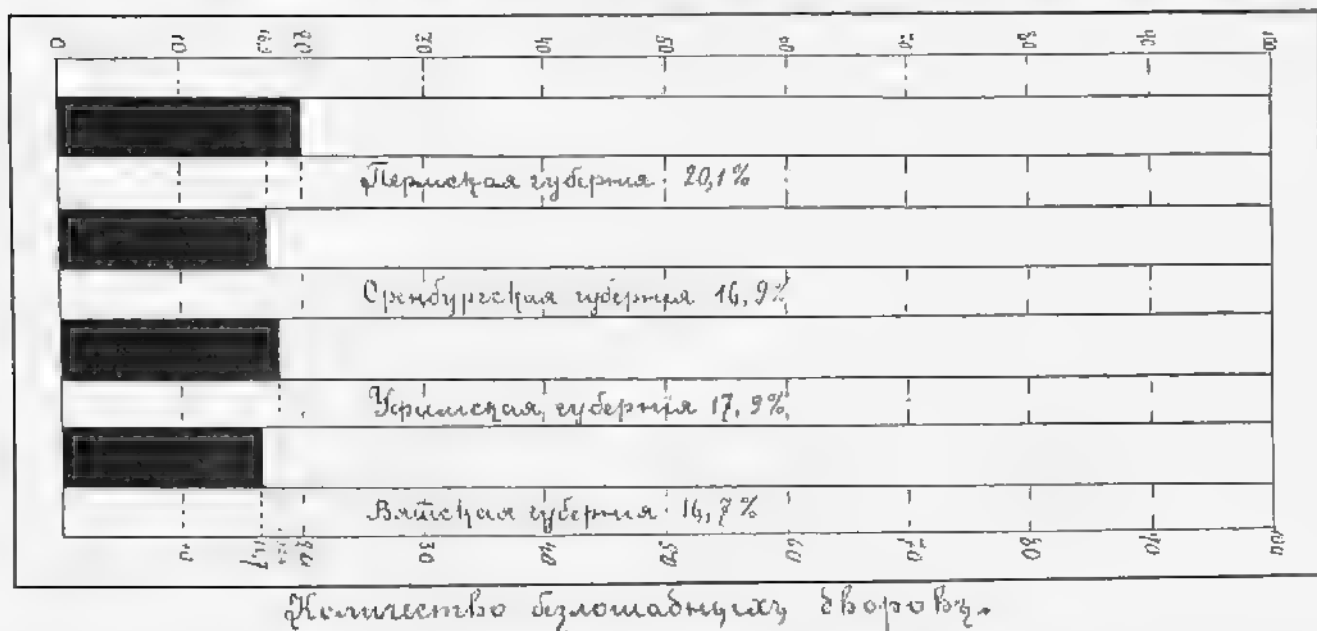 0 10 16,9 20 30 40 50 60 70 80 90 100
Пермская губернія 20,1%
Оренбургская губернія 16,9%
Уфимская губернія 17,9%
Вятская губернія 16,7%
10 16,7 20 30 40 50 60 70 80 90 100
Количество безлошадныхъ дворовъ.